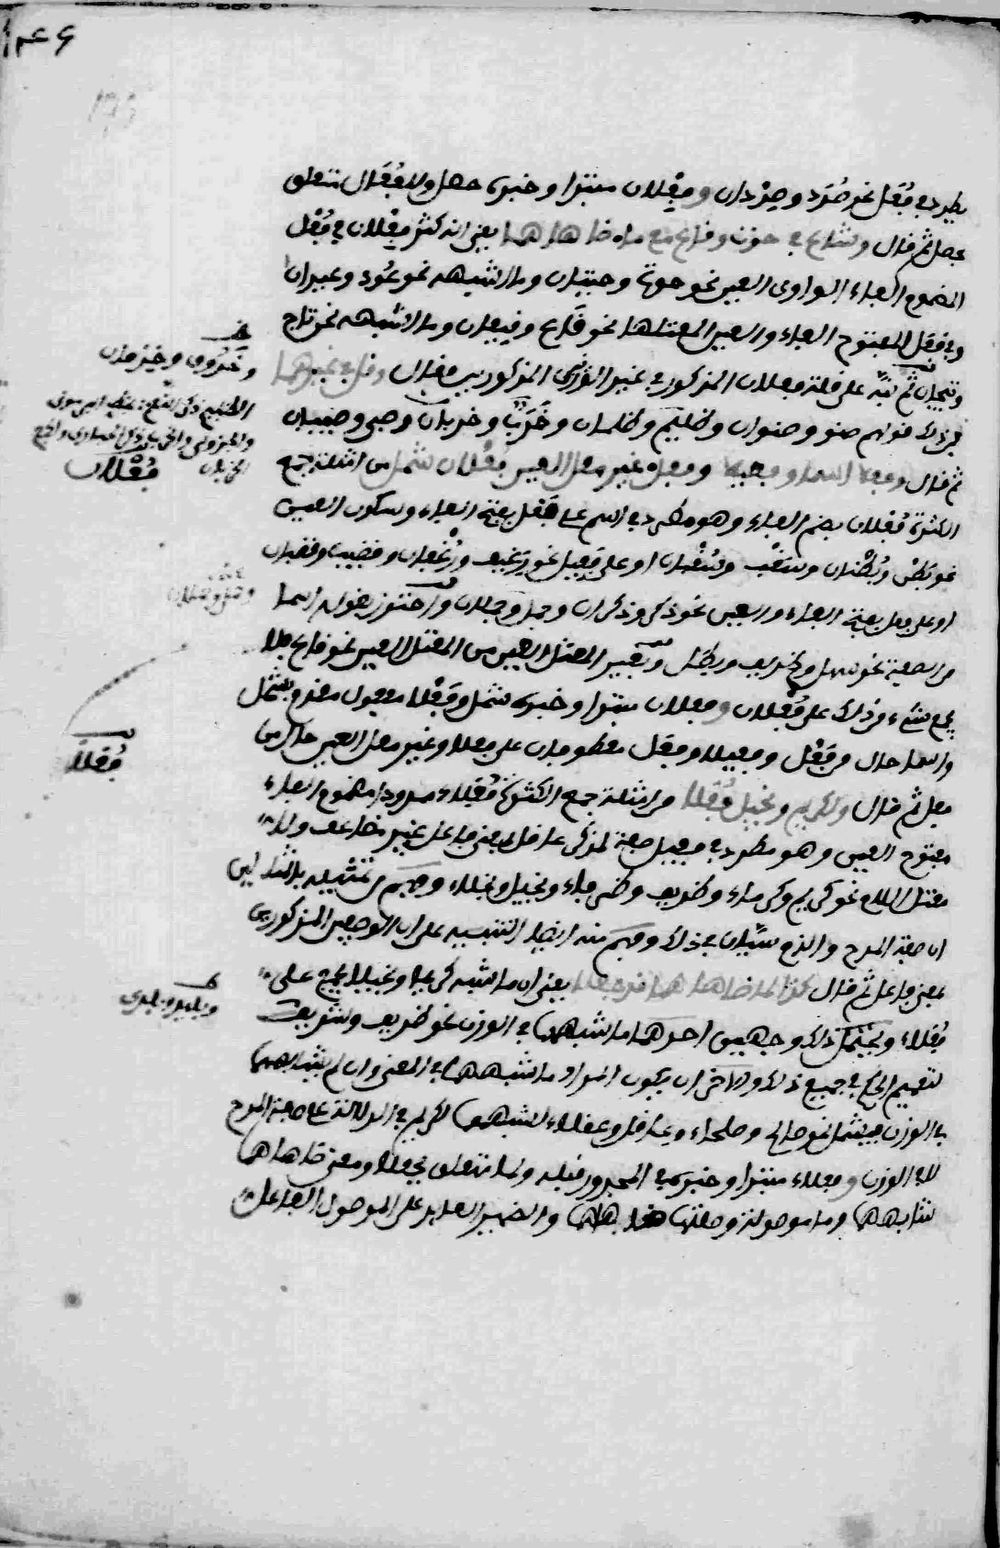 يطرد في فُعَل نحو صُرَد وصِرْدان وفِعْلان مبتدا وخبره حصل وللفُعَال متعلق
بحصل ثم قال وشاع في حوت وقاع مع ما ضاهاهما يعني انه كثر فِعْلان في فُعْل
المضموم الفاء الواوي العين نحو حوت وحيتان وما اشبهه نحو عُود وعيدان
وفي فَعَل المفتوح الفاء والعين المعتلها نحو قاع وقيعان وما اشبهه نحو تاج
وتيجان ثم نبّه على قلة فعلان المذكور في غير الوزنين المذكورين فقال وقل في غيرهما
فمن ذلك قولهم صنو وصنوان وظليم وظلمان وخَرَب وخربان وصبي وصبيان
ثم قال وفعلا اسما وفعيلا وفعل غير معل العين فُعْلان شمل من امثلة جمع
الكثرة فُعْلان بضم الفاء وهو مطرد في اسم على فَعْل بفتح الفاء وسكون العين
نحو بَطْن وبُطْنان وسَقْب وسُقْبان او على فَعِيل نحو رَغيف ورُغْفان وقضيب وقضبان
او على فعل بفتح الفاء والعين نحو ذكر وذكران وحمل وحملان واحترز بقوله اسما
من الصفة نحو سهل وظريف وبطل وبغير المعتل العين من المعتل العين نحو قاع فلا
يجمع شيء من ذلك على فُعْلان وفعلان مبتدا وخبره شمل وفَعْلا مفعول مقدم بشمل
واسما حال من فَعْل وفعيلا وفعل معطوفان على فعلا وغير معل العين حال من
فعل ثم قال ولكريم وبخيل فُعَلا من امثلة جمع الكثرة فُعَلاء ممدودا مضموم الفاء
مفتوح العين وهو مطرد في فعيل صفة لمذكر عاقل بمعنى فاعل غير مضاعف ولا
معتل اللام نحو كريم وكرماء وظريف وظرفاء وبخيل وبخلاء وفهم من تمثيله بالمثالين
ان صفة المدح والذم سيّان في ذلك وفهم منه ايضا التنبيه على ان الوصفين المذكورين
بمعنى فاعل ثم قال كذا لما ضاهاهما قد جعلا يعني ان ما اشبه كريما وبخيلا يجمع على
فُعَلاء ويحتمل ذلك وجهين احدهما ما شابههما في الوزن نحو ظريف وشريف
لتعميم الحكم في جميع ذلك والاخر ان يكون المراد ما اشبههما في المعنى وان لم يشابههما
في الوزن فيشمل نحو صالح وصلحاء وعاقل وعقلاء لشبههما لكريم في الدلالة على صفة المدح
لا في الوزن وفعلاء مبتدا وخبره في المجرور قبله ولما متعلق بجعلا ومعنى ضاهاهما
شابههما وما موصولة وصلتها ضاهاهما والضمير العايد على الموصول الفاعل
وخروف وخرفان
فُعْلان
وحمل وحملان
فُعَلاء